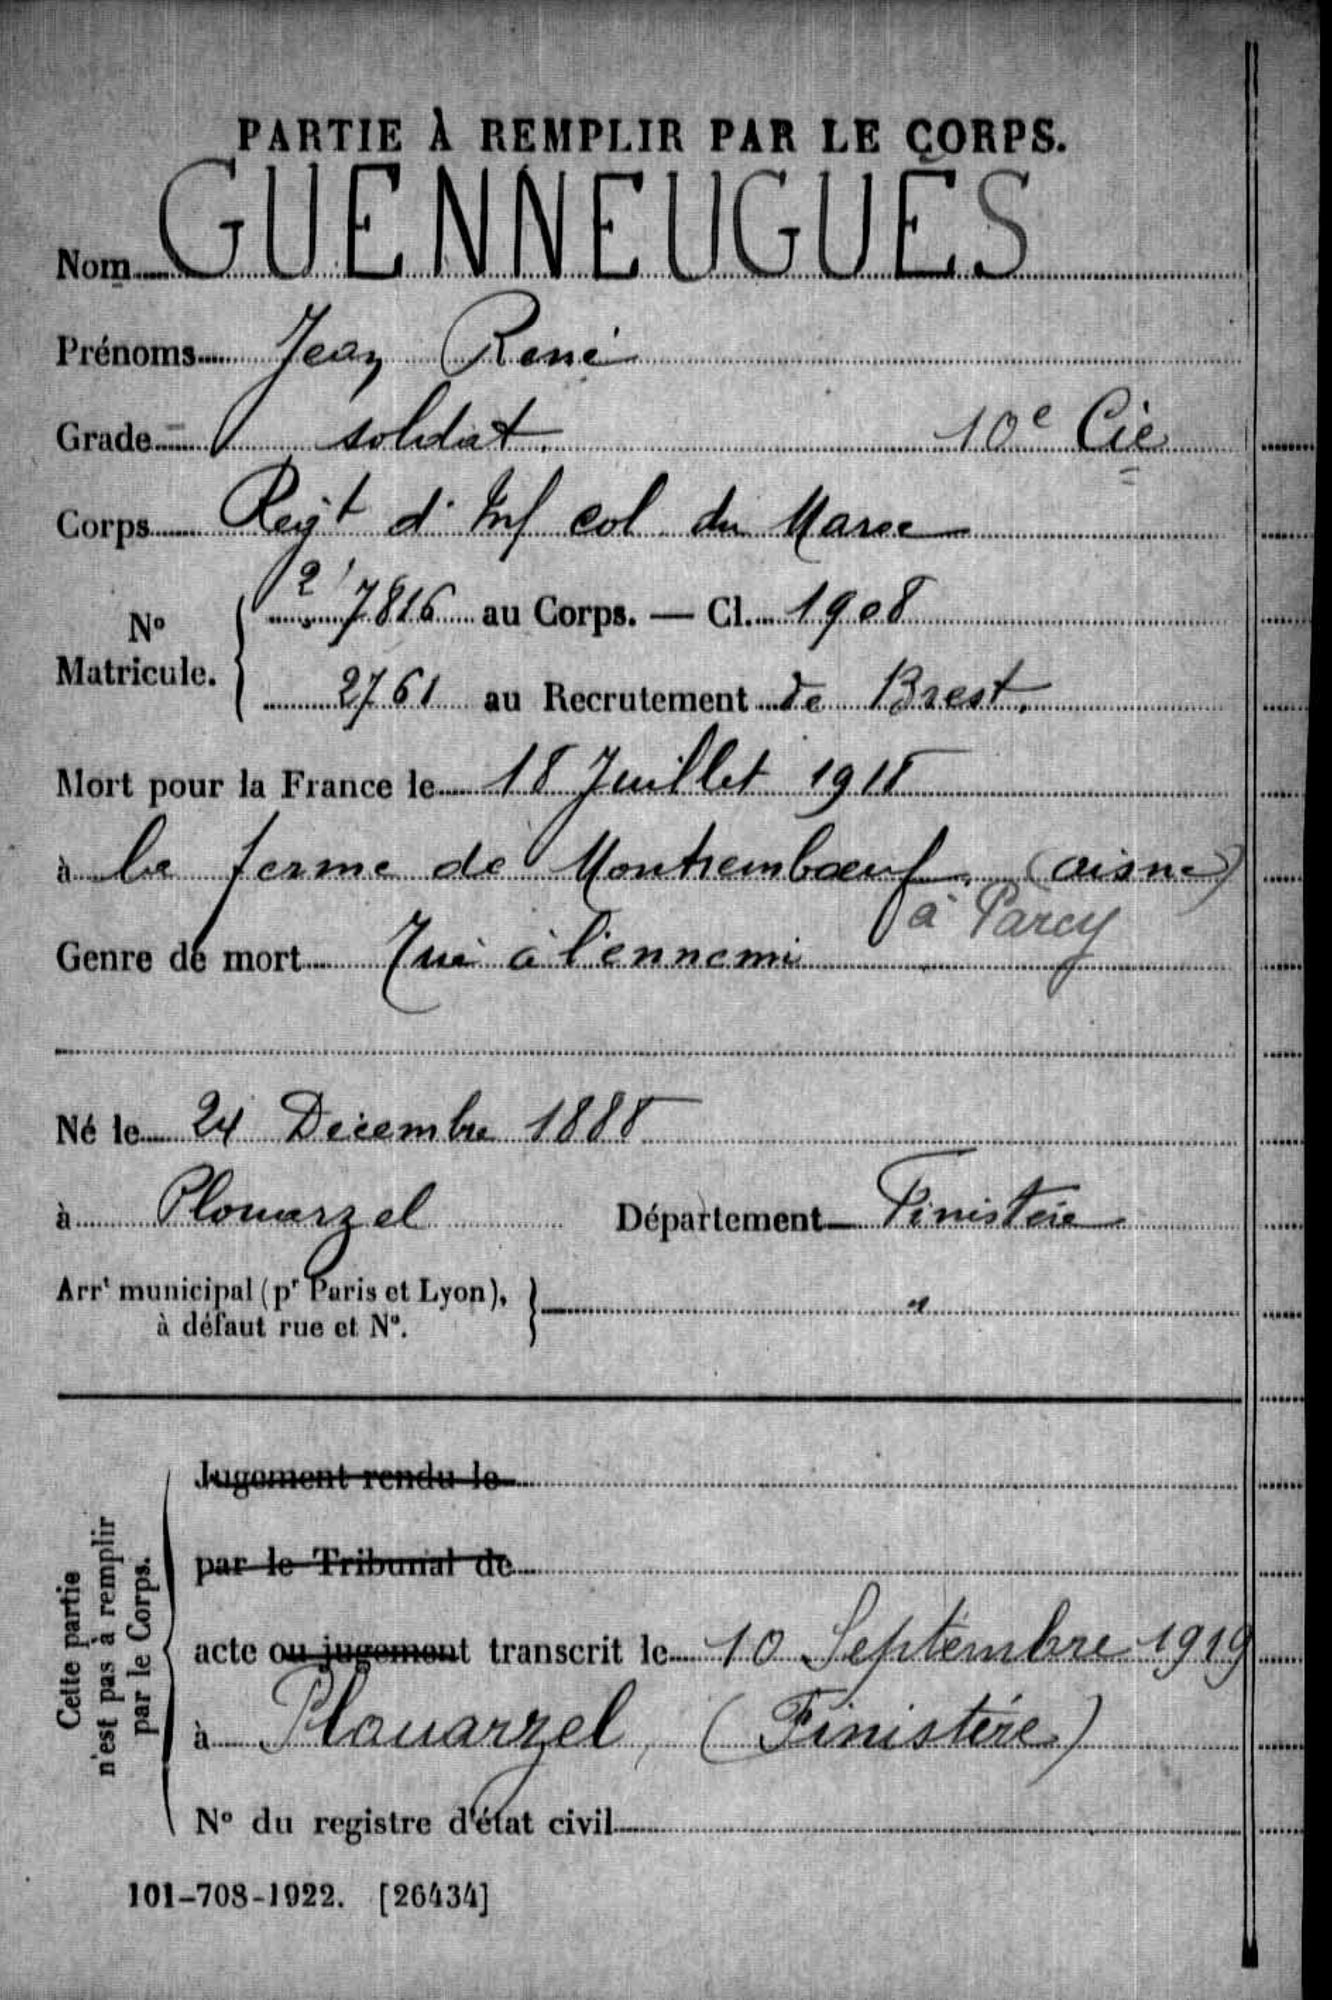 PARTIE À REMPLIR PAR LE CORPS.
Nom GUENNEUGUES
Prénoms Jean René
Grade soldat. 10e Cie
Corps Regt d' Inf col du Maroc
No Matricule. 2' 7816 au Corps. — Cl. 1908
2761 au Recrutement de Brest.
Mort pour la France le 18 Juillet 1918
à la ferme de Montremboeuf. (aisne)
à Parcy
Genre de mort Tué à l'ennemi
Né le 24 Décembre 1888
à Plouarzel Département Finistère
Arrt municipal (pr Paris et Lyon), à défaut rue et No. "
Cette partie n'est pas à remplir par le Corps.
Jugement rendu le
par le Tribunal de
acte ou jugement transcrit le 10 Septembre 1919
à Plouarzel, (Finistère)
No du registre d'état civil
101-708-1922. [26434]